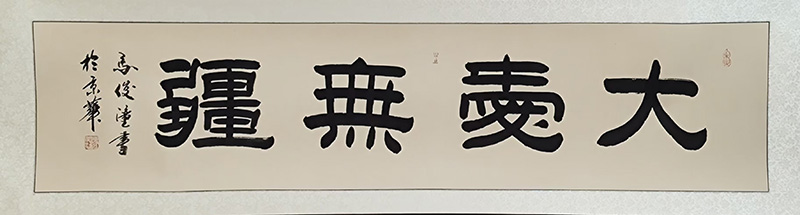 大愛無疆
馬俊書
於京華